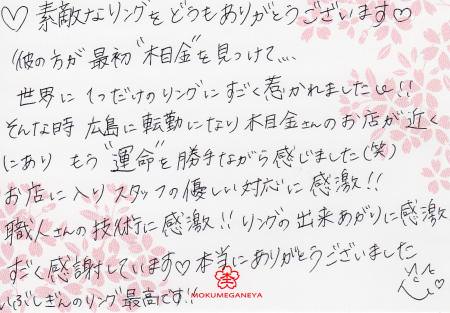 ♡ 素敵なリングをどうもありがとうございます♡
彼の方が最初"木目金"を見つけて、、、、
世界に1つだけのリングにすごく惹かれました!!
そんな時 広島に転勤になり木目金さんのお店が近く
にあり もう"運命"を勝手ながら感じました(笑)
お店に入りスタッフの優しい対応に感激!!
職人さんの技術に感激!!リングの出来あがりに感激
すごく感謝しています♡本当にありがとうございました
いぶしぎんのリング最高です!!
MOKUMEGANEYA